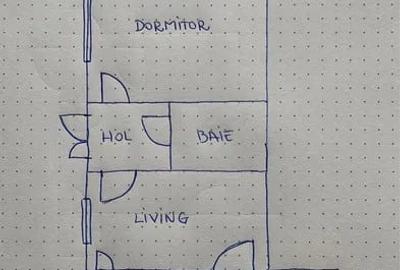 DORMITOR
HOL
BAIE
LIVING